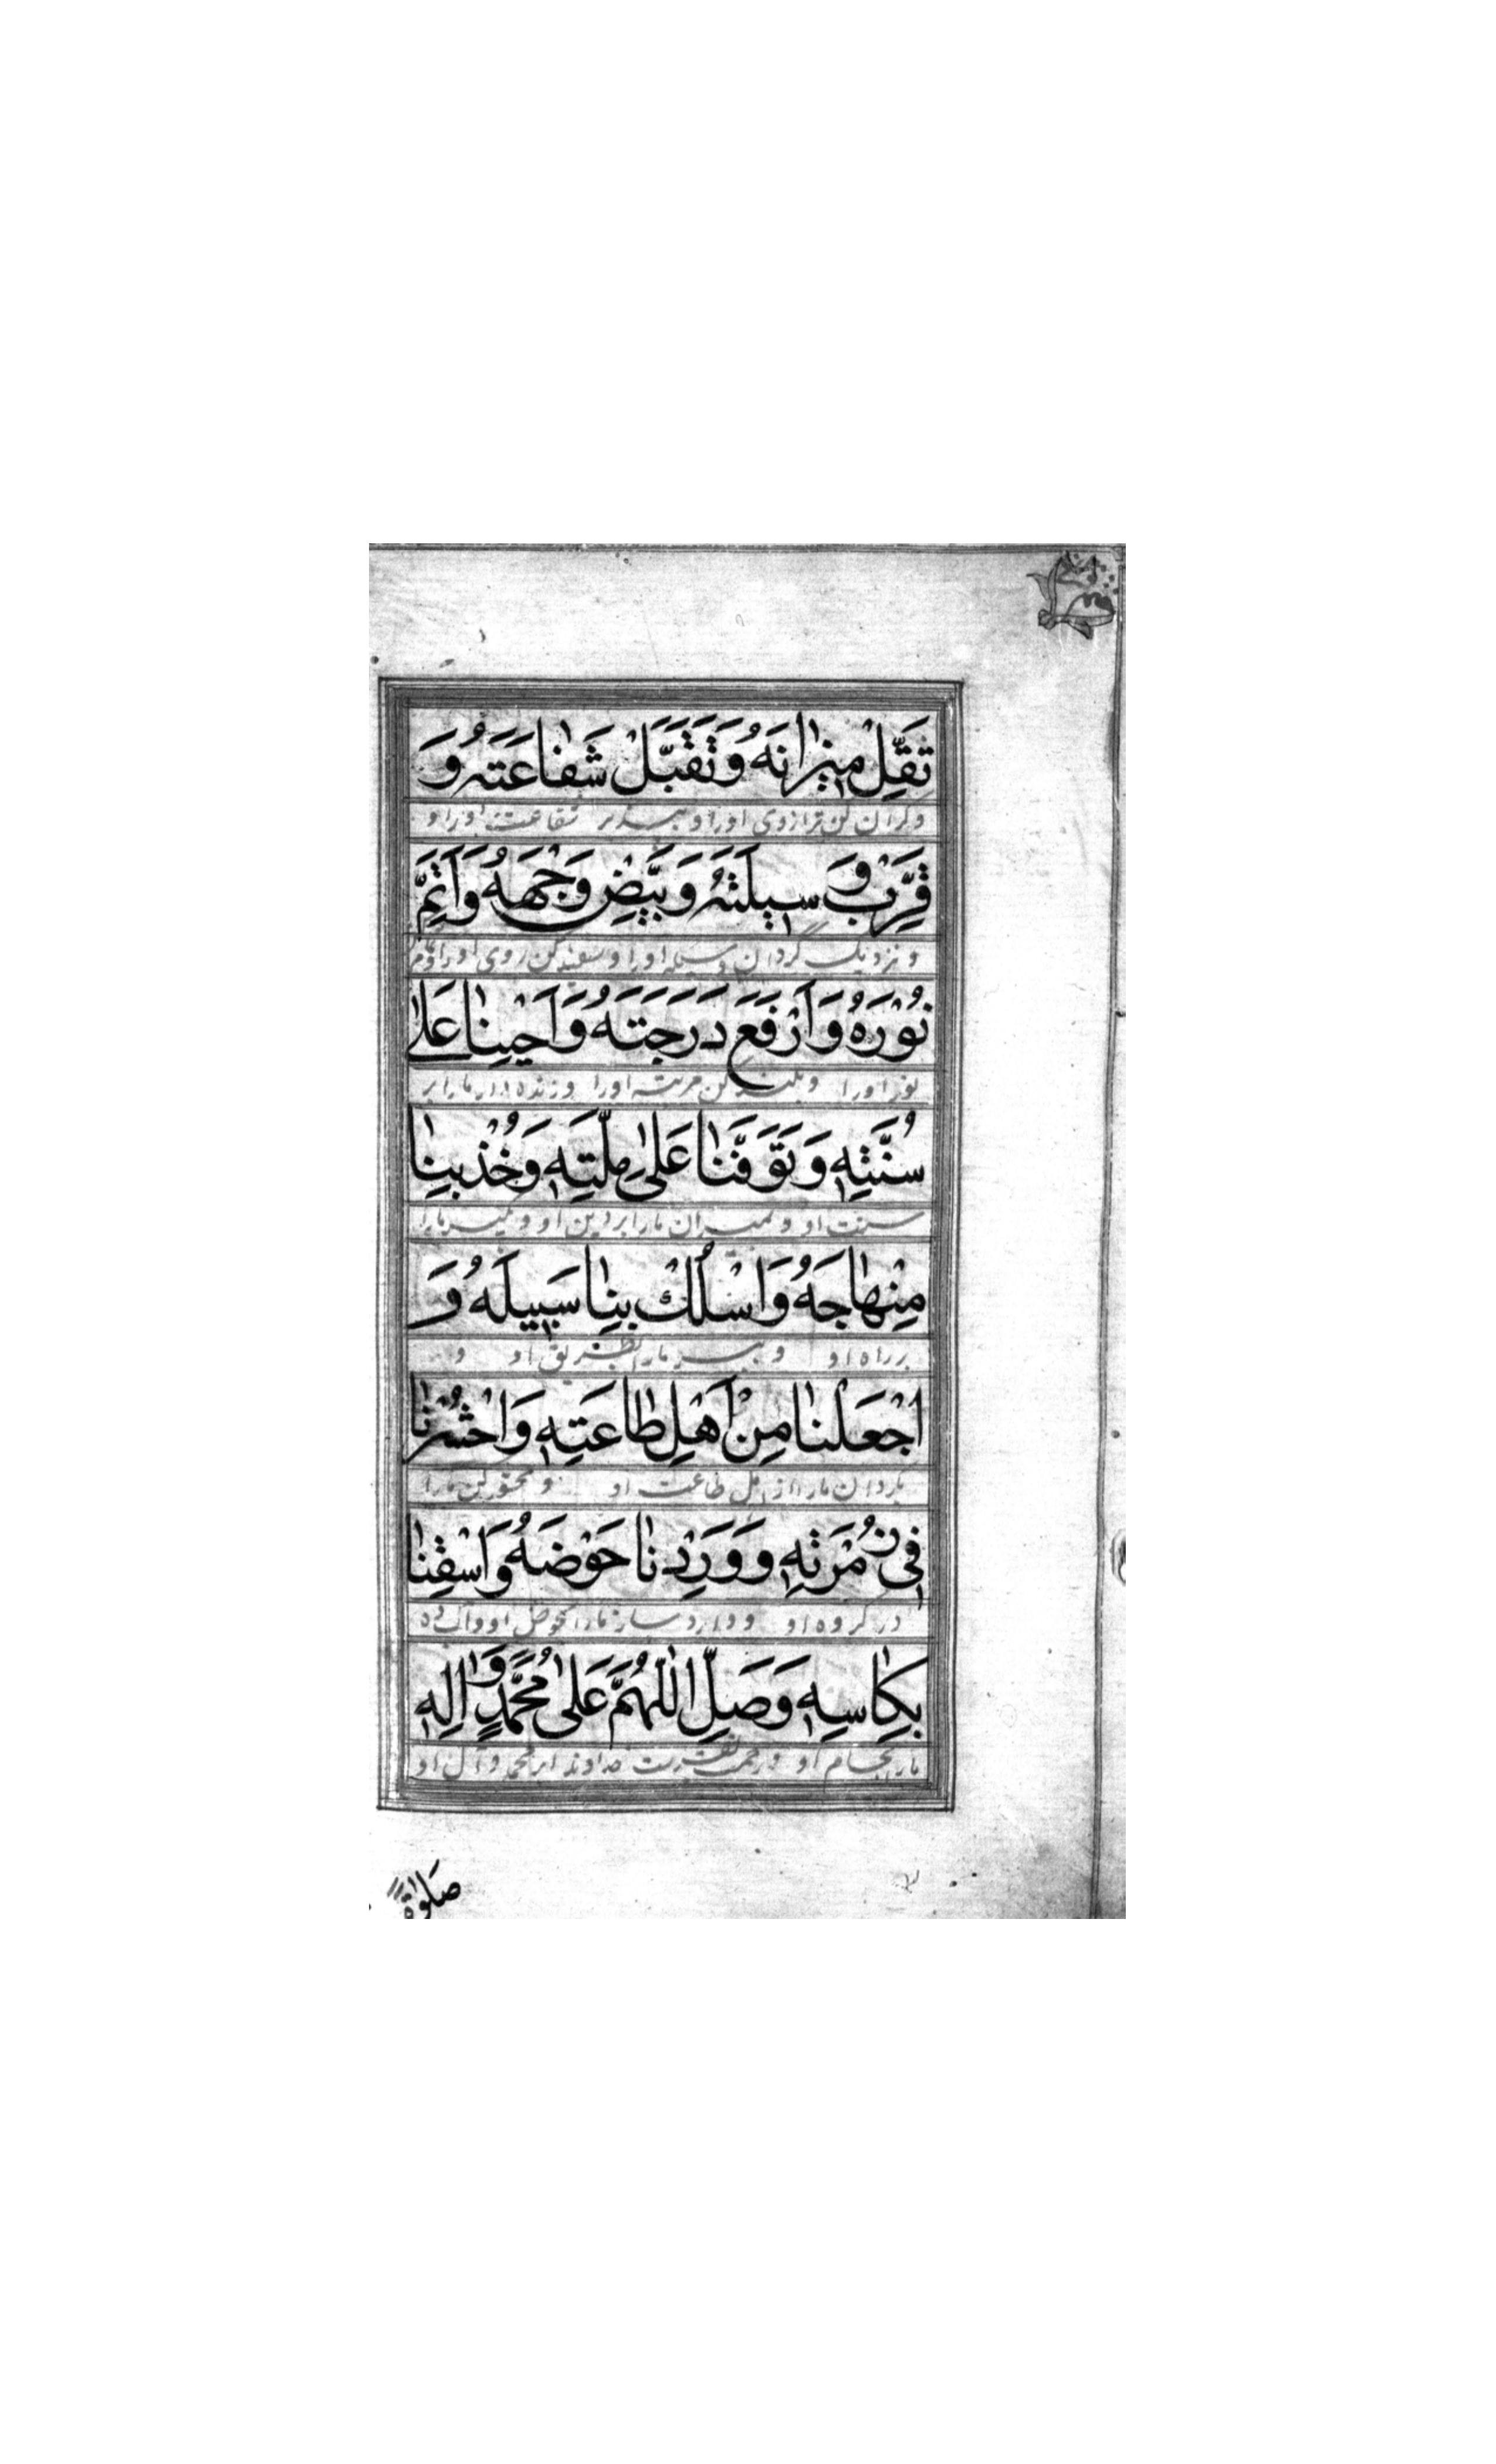 ثَقِّلْ مِيزٰانَهُ وَتَقَبَّلْ شَفٰاعَتَهُ وَ
و گران کن ترازوی اورا و بپذیر شفاعت اورا و
قَرِّبْ وَسِيلَتَهُ وَبَيِّضْ وَجْهَهُ وَاَتِمَّ
و نزدیک گردان وسیله اورا و سفید کن روی اورا و تمام
نُورَهُ وَارْفَعْ دَرَجَتَهُ وَاَحْيِنٰا عَلىٰ
نور اورا و بلند کن مرتبه اورا و زنده دار مارا بر
سُنَّتِهِ وَتَوَفَّنٰا عَلىٰ مِلَّتِهِ وَخُذْ بِنٰا
سنت او و بمیران مارا بر دین او و بگیر مارا
مِنْهٰاجَهُ وَاسْلُكْ بِنٰا سَبِيلَهُ وَ
بر راه او و ببر مارا بطریق او و
اجْعَلْنٰا مِنْ اَهْلِ طٰاعَتِهِ وَاحْشُرْنٰا
بگردان مارا از اهل طاعت او و محشور کن مارا
فِى زُمْرَتِهِ وَوَرِدْنٰا حَوْضَهُ وَاسْقِنٰا
در گروه او و وارد ساز مارا بحوض او و آب ده
بِكَاْسِهِ وَصَلِّ اللّٰهُمَّ عَلىٰ مُحَمَّدٍ وَاٰلِهِ
مارا بجام او و رحمت بفرست خداوندا بر محمد و آل او
صَلٰوةً